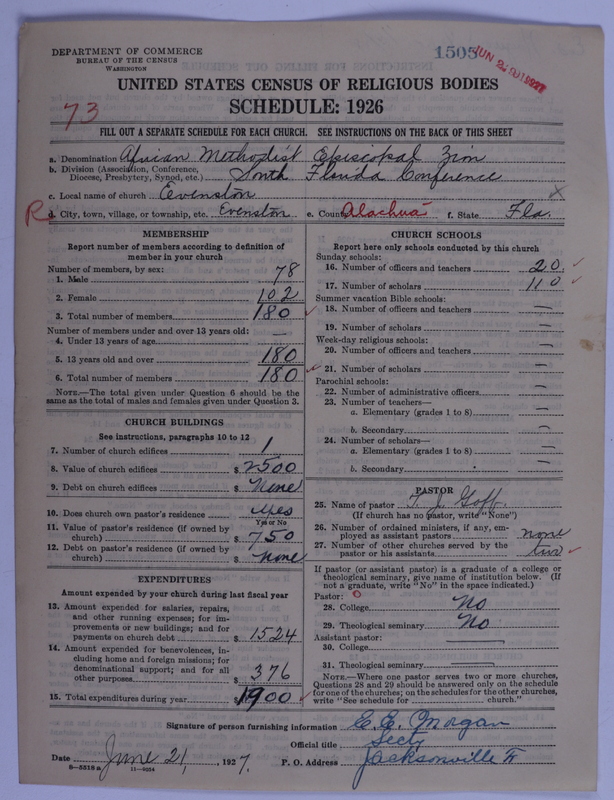 DEPARTMENT OF COMMERCE
BUREAU OF THE CENSUS
WASHINGTON
1505
UNITED STATES CENSUS OF RELIGIOUS BODIES
SCHEDULE: 1926
73
FILL OUT A SEPARATE SCHEDULE FOR EACH CHURCH. SEE INSTRUCTIONS ON THE BACK OF THIS SHEET
a. Denomination African Methodist Episcopal Zion
b. Division (Association, Conference, Diocese, Presbytery, Synod, etc.) South Florida Conference
c. Local name of church Evenston
R d. City, town, village, or township, etc. Evenston e. County Alachua f. State Fla.
MEMBERSHIP
Report number of members according to definition of
member in your church
Number of members, by sex:
1. Male 78
2. Female 102
3. Total number of members 180
Number of members under and over 13 years old:
4. Under 13 years of age —
5. 13 years old and over 180
6. Total number of members 180
NOTE.—The total given under Question 6 should be the
same as the total of males and females given under Question 3.
CHURCH BUILDINGS
See instructions, paragraphs 10 to 12
7. Number of church edifices 1
8. Value of church edifices $2500
9. Debt on church edifices $None
10. Does church own pastor's residence? yes
Yes or No
11. Value of pastor's residence (if owned by
church) $750
12. Debt on pastor's residence (if owned by
church) $None
EXPENDITURES
Amount expended by your church during last fiscal year
13. Amount expended for salaries, repairs,
and other running expenses; for im-
provements or new buildings; and for
payments on church debt $1524
14. Amount expended for benevolences, in-
cluding home and foreign missions; for
denominational support; and for all
other purposes $376
15. Total expenditures during year $1900
CHURCH SCHOOLS
Report here only schools conducted by this church
Sunday schools:
16. Number of officers and teachers 20
17. Number of scholars 110
Summer vacation Bible schools:
18. Number of officers and teachers —
19. Number of scholars —
Week-day religious schools:
20. Number of officers and teachers —
21. Number of scholars —
Parochial schools:
22. Number of administrative officers —
23. Number of teachers—
a. Elementary (grades 1 to 8) —
b. Secondary —
24. Number of scholars—
a. Elementary (grades 1 to 8) —
b. Secondary —
PASTOR
25. Name of pastor T. J. Goff
(If church has no pastor, write "None")
26. Number of ordained ministers, if any, em-
ployed as assistant pastors none
27. Number of other churches served by the
pastor or his assistants two
If pastor (or assistant pastor) is a graduate of a college or
theological seminary, give name of institution below. (If
not a graduate, write "No" in the space indicated.)
Pastor:
28. College No
29. Theological seminary No
Assistant pastor:
30. College —
31. Theological seminary —
NOTE.—Where one pastor serves two or more churches,
Questions 28 and 29 should be answered only on the schedule
for one of the churches; on the schedules for the other churches,
write "See schedule for church."
Signature of person furnishing information E. E. Morgan
Official title Secty
Date June 21, 1927. P. O. Address Jacksonville Fl
8—5318a 11—9224